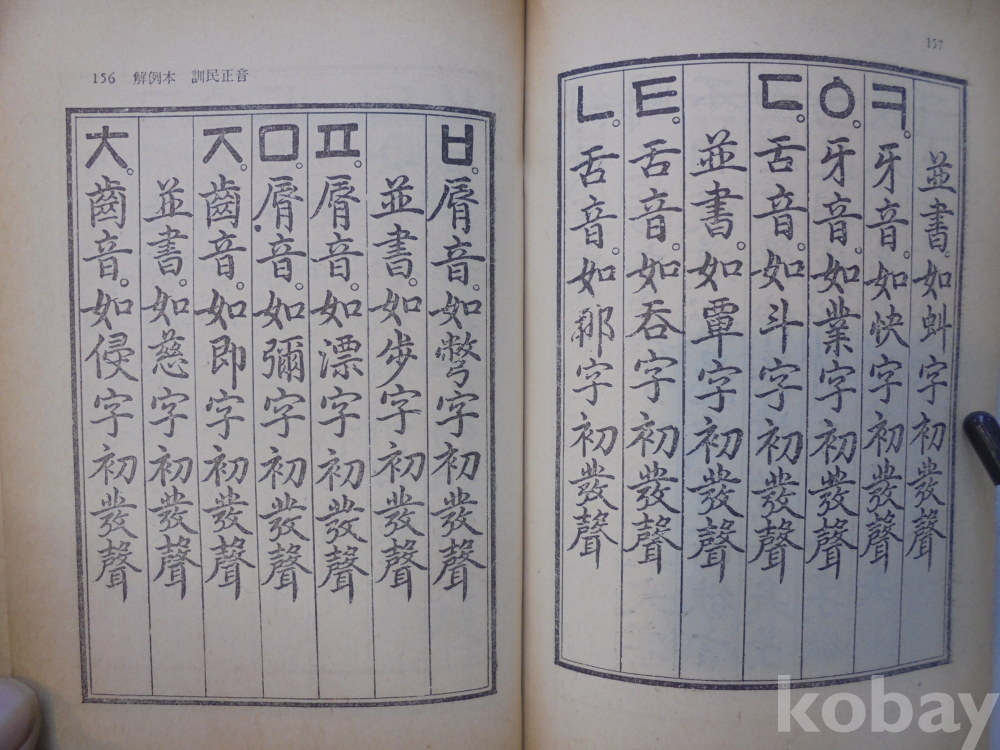 157
並書。如虯字初發聲
ㅋ。牙音。如快字初發聲
ㆁ。牙音。如業字初發聲
ㄷ。舌音。如斗字初發聲
並書。如覃字初發聲
ㅌ。舌音。如呑字初發聲
ㄴ。舌音。如那字初發聲
156 解例本 訓民正音
ㅂ。脣音。如彆字初發聲
並書。如步字初發聲
ㅍ。脣音。如漂字初發聲
ㅁ。脣音。如彌字初發聲
ㅈ。齒音。如即字初發聲
並書。如慈字初發聲
ㅊ。齒音。如侵字初發聲
kobay